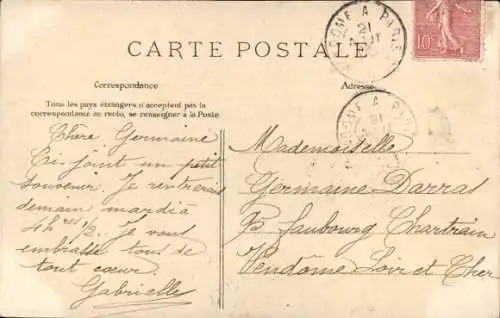 VENDOME A PARIS
21
10
CARTE POSTALE
Correspondance
Adresse
Tous les pays étrangers n'acceptent pas la
correspondance au recto, se renseigner à la Poste.
A PARIS
21
Chère Germaine
Ci-joint un petit
souvenir. Je rentrerai
demain mardi à
4 hres 1/2. Je vous
embrasse tous de
tout cœur
Gabrielle
Mademoiselle
Germaine Darras
Faubourg Chartrain
Vendôme Loir et Cher